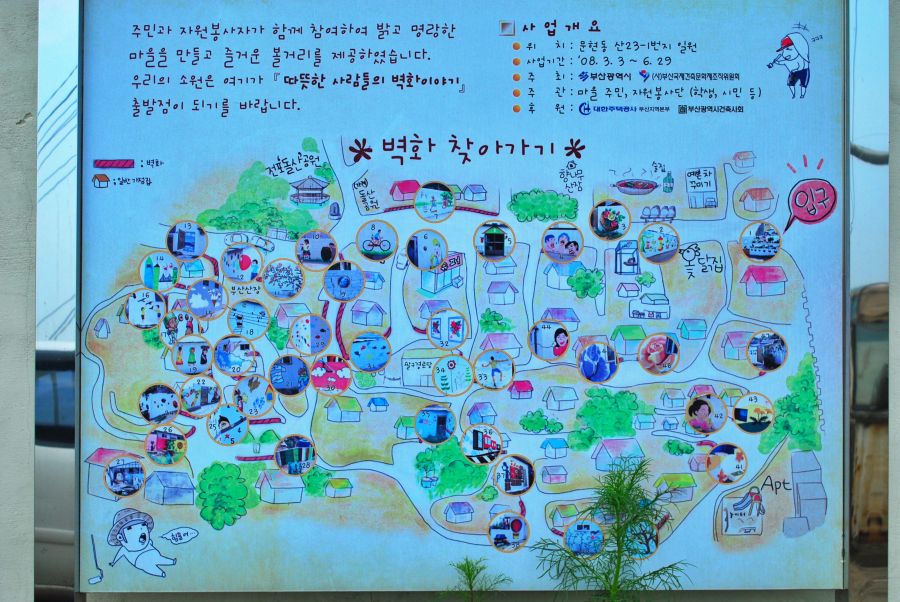 주민과 자원봉사자가 함께 참여하여 밝고 명랑한
마을을 만들고 즐거운 볼거리를 제공하였습니다.
우리의 소원은 여기가 『따뜻한 사람들의 벽화이야기』
출발점이 되기를 바랍니다.
사업개요
위 치 : 문현동 산23-1번지 일원
사업기간 : '08. 3. 3 ~ 6. 29
주 최 : 부산광역시 (사)부산국제건축문화제조직위원회
주 관 : 마을 주민, 자원봉사단 (학생, 시민 등)
후 원 : 대한주택공사 부산지역본부 부산광역시건축사회
벽화 찾아가기
: 벽화
: 일반가정집
전포돌산공원
돌산공원
향나무산장
술집
입구
닭집
부산산장
Apt
놀이터
힘들어...
1
2
3
4
5
6
7
8
10
13
14
16
18
19
20
21
22
23
25
26
27
28
30
32
33
34
41
42
43
44
46